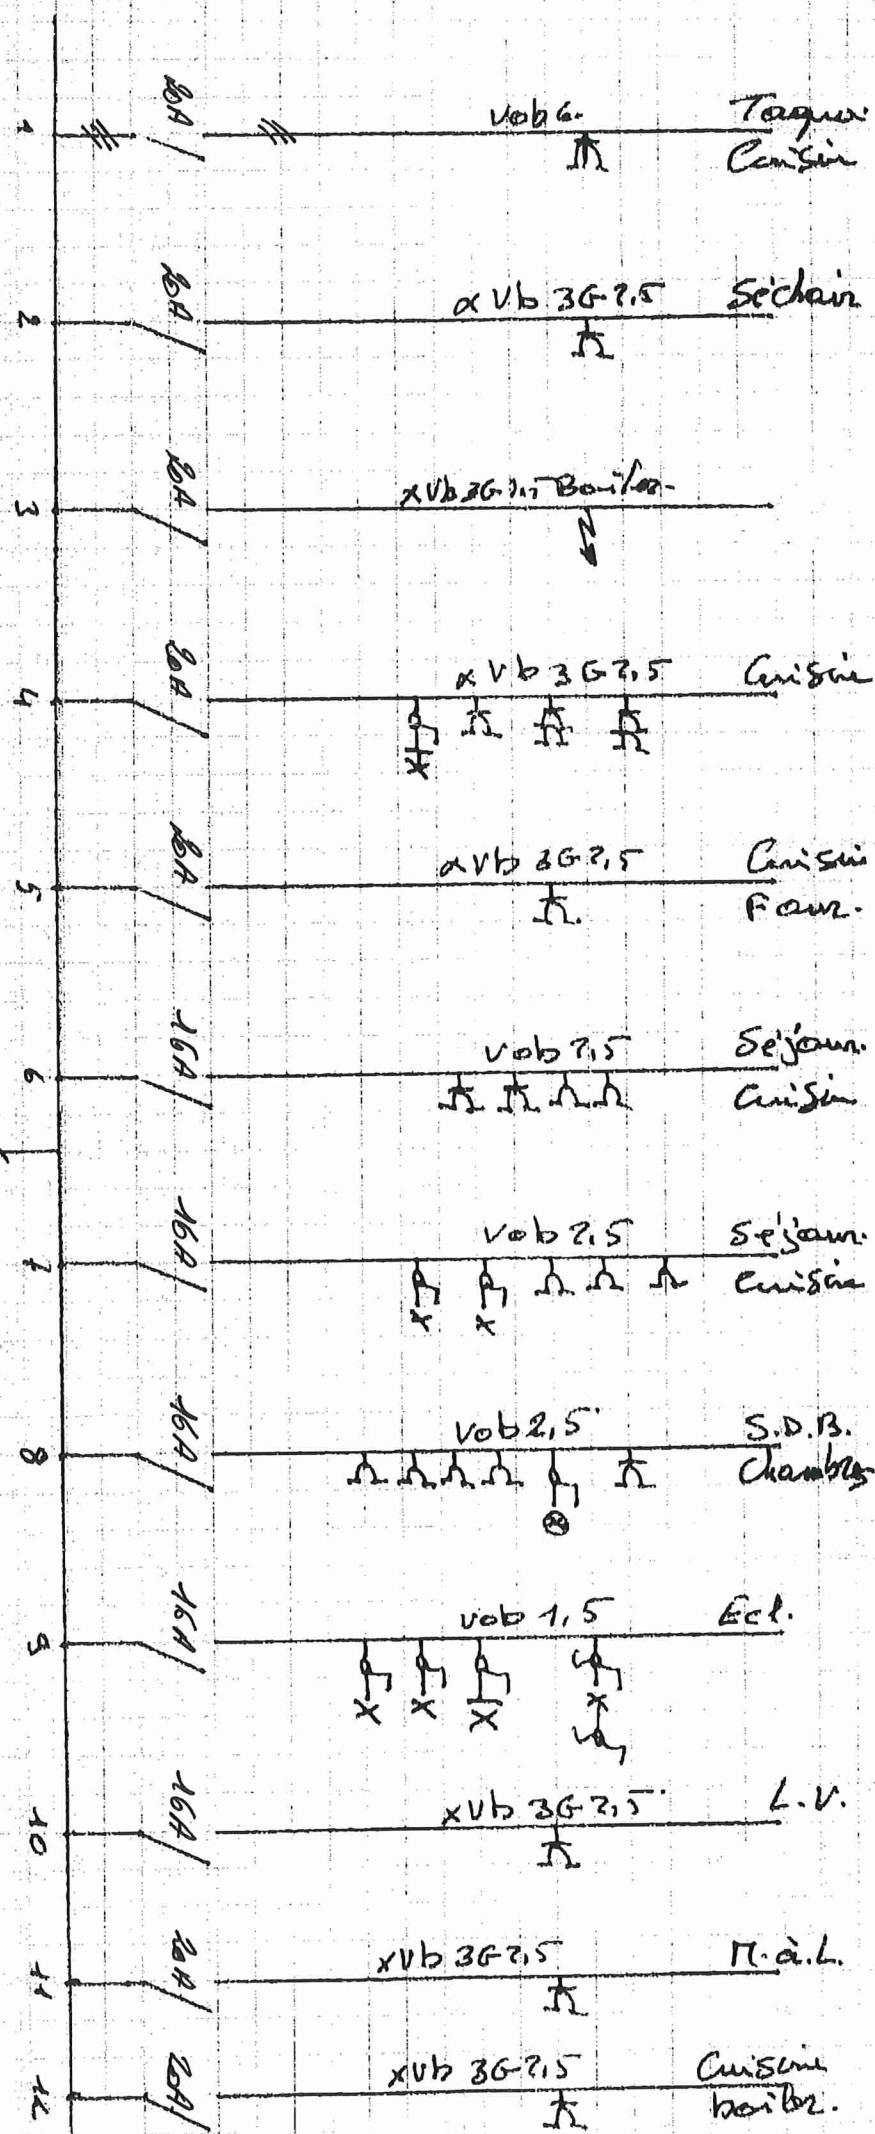 1 20A vob 6. Taques
Cuisine
2 20A xvb 3G2,5 Séchoir
3 20A xvb 3G2,5 Boiler
4 20A xvb 3G2,5 Cuisine
5 20A xvb 3G2,5 Cuisine
Four.
6 16A vob 2,5 Séjour.
Cuisine
7 16A vob 2,5 Séjour.
Cuisine
8 16A vob 2,5 S.D.B.
Chambres
9 16A vob 1,5 Ecl.
10 16A xvb 3G2,5 L.V.
11 20A xvb 3G2,5 M.à.L.
12 20A xvb 3G2,5 Cuisine
boiler.